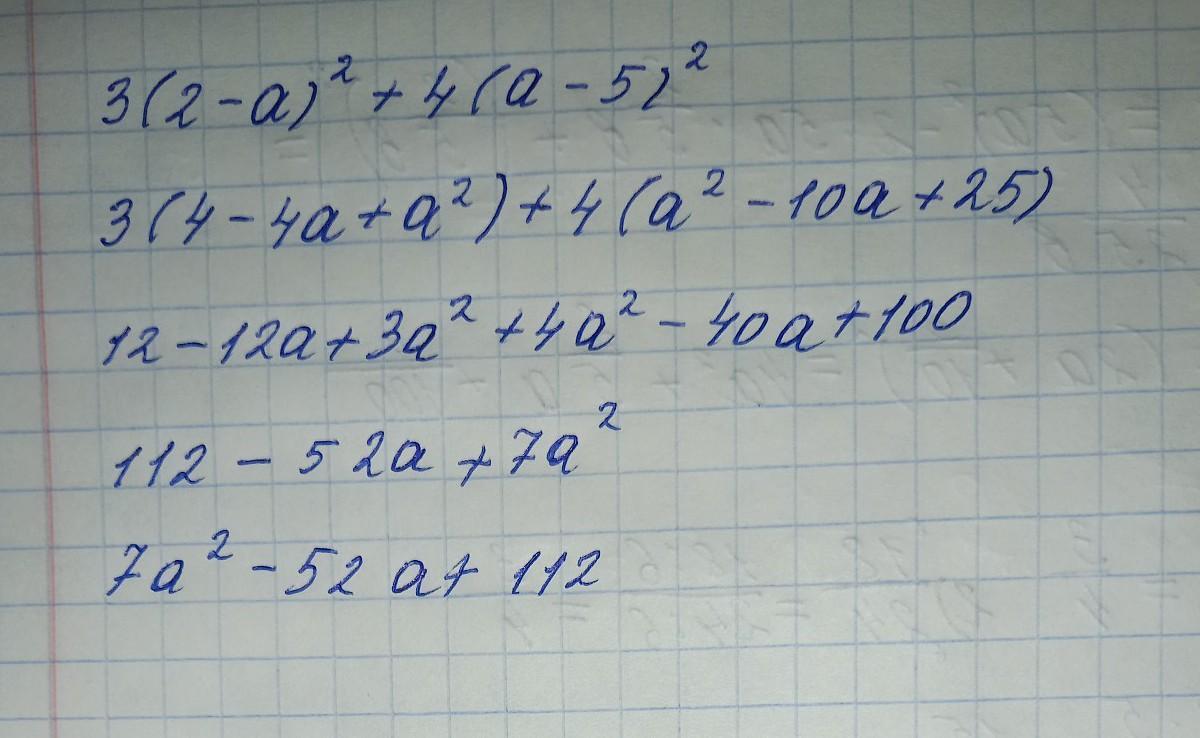 3(2-a)² + 4(a-5)²
3(4-4a+a²)+4(a²-10a+25)
12-12a+3a²+4a²-40a+100
112-52a+7a²
7a²-52a+112